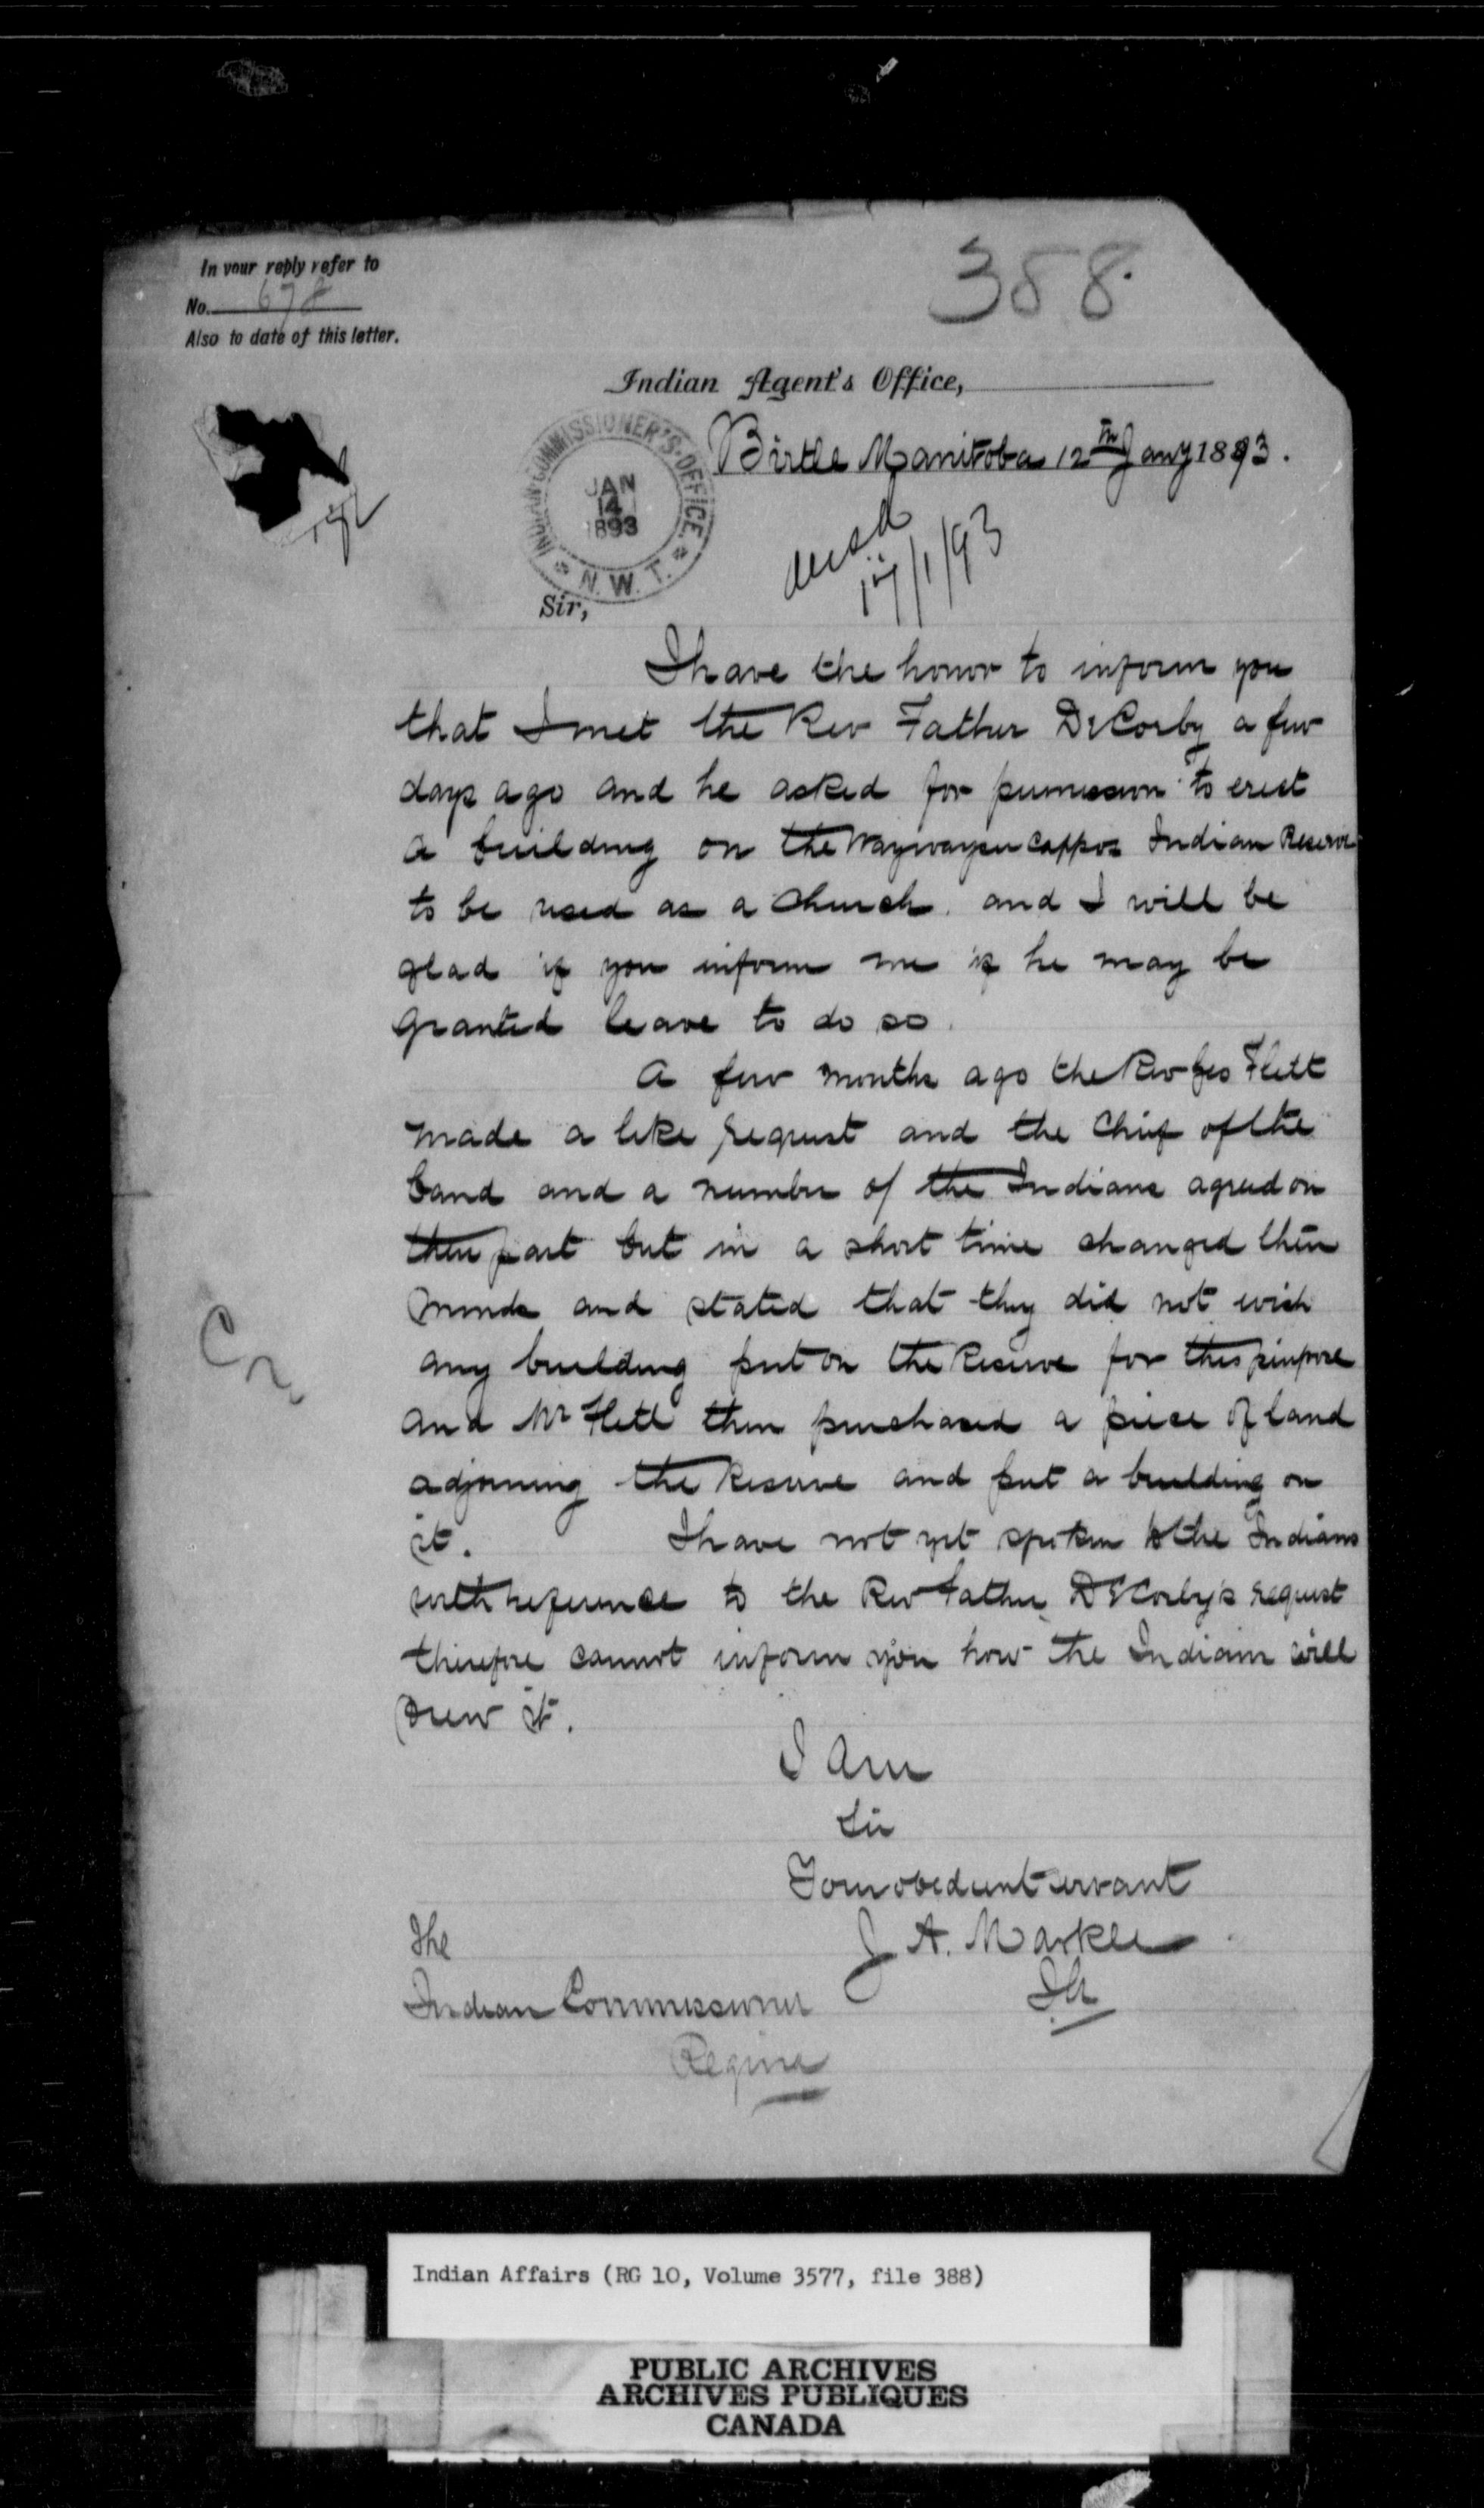 In your reply refer to
No. 678
Also to date of this letter.
388.
Indian Agent's Office,
Birtle Manitoba 12th Jany 1893.
INDIAN COMMISSIONER'S OFFICE
JAN
14
1893
N. W. T.
17/1/93
Sir,
I have the honor to inform you
that I met the Rev Father DeCorby a few
days ago and he asked for permission to erect
a building on the Waywayseecappos Indian Reserve
to be used as a Church. and I will be
glad if you inform me if he may be
granted leave to do so.
A few months ago the Rev Geo Flett
made a like request and the Chief of the
band and a number of the Indians agreed on
their part but in a short time changed their
minds and stated that they did not wish
any building put on the Reserve for this purpose
and Mr Flett then purchased a piece of land
adjoining the Reserve and put a building on
it. I have not yet spoken to the Indians
with reference to the Rev Father DeCorby's request
therefore cannot inform you how the Indians will
view it.
I am
Sir
Your obedient servant
J. A. Markle
IA
The
Indian Commissioner
Regina
Indian Affairs (RG 10, Volume 3577, file 388)
PUBLIC ARCHIVES
ARCHIVES PUBLIQUES
CANADA